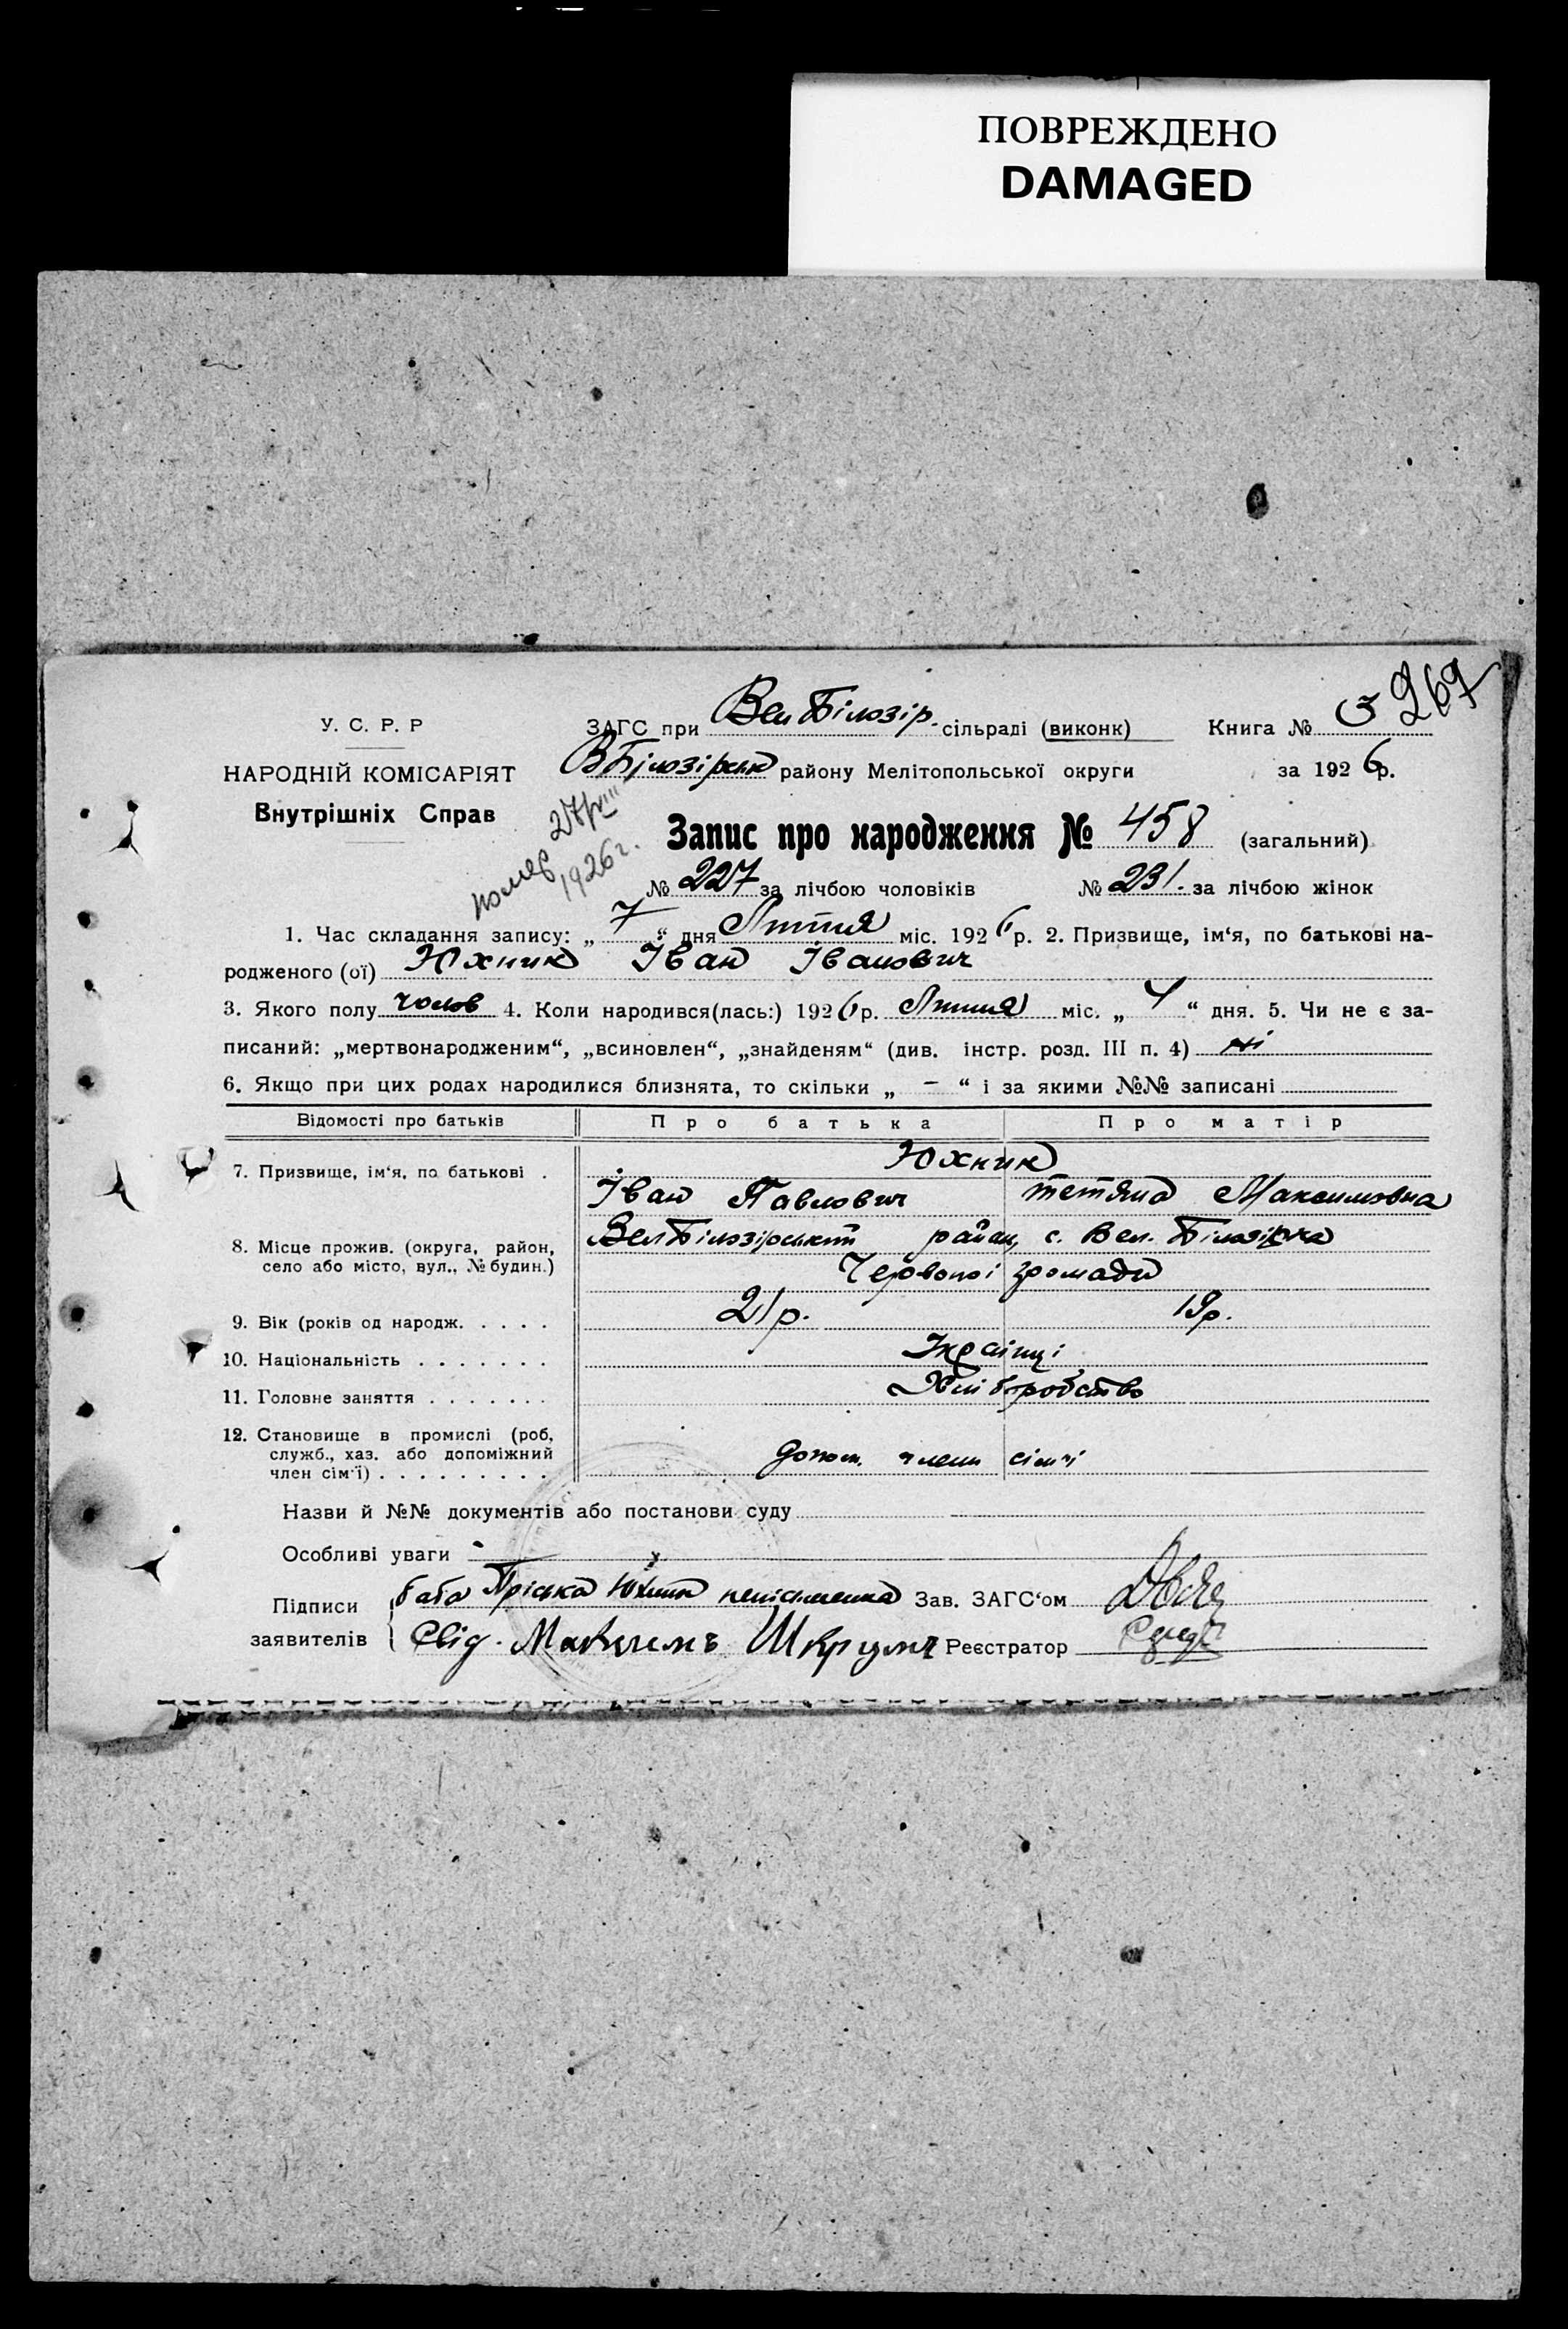 ПОВРЕЖДЕНО
DAMAGED
267
У. С. Р. Р
ЗАГС при Вел Білозір. сільраді (виконк) Книга № 3
НАРОДНІЙ КОМІСАРІЯТ
ВБілозірськ району Мелітопольської округи за 1926 р.
Внутрішніх Справ
помер 27/VIII
1926 г.
Запис про народження № 458 (загальний)
№ 227 за лічбою чоловіків № 231. за лічбою жінок
1. Час складання запису: „ 7 “ дня Липня міс. 1926 р. 2. Призвище, ім‘я, по батькові на-
родженого (ої) Юхник Іван Іванович
3. Якого полу чолов 4. Коли народився(лась:) 1926 р. Липня міс. „ 4 “ дня. 5. Чи не є за-
писаний: „мертвонародженим“, „всиновлен“, „знайденям“ (див. інстр. розд. III п. 4) ні
6. Якщо при цих родах народилися близнята, то скільки „ – “ і за якими №№ записані
Відомості про батьків Про батька Про матір
7. Призвище, ім‘я, по батькові . Юхник
Іван Павлович Тетяна Максимовна
8. Місце прожив. (округа, район,
село або місто, вул., № будин.)
ВелБілозірський район, с. Вел. Білозірка
Червоної громади
9. Вік (років од народж. . . . . 21 р. 19 р.
10. Національність . . . . . . . Українці
11. Головне заняття . . . . . . . Хліборобство
12. Становище в промислі (роб,
служб., хаз. або допоміжний
член сім‘ї) . . . . . . . . . допом. члени сім'ї
Назви й №№ документів або постанови суду
Особливі уваги
Підписи баба Пріська Юхник неписьменна Зав. ЗАГС‘ом
заявителів Свід. Реєстратор